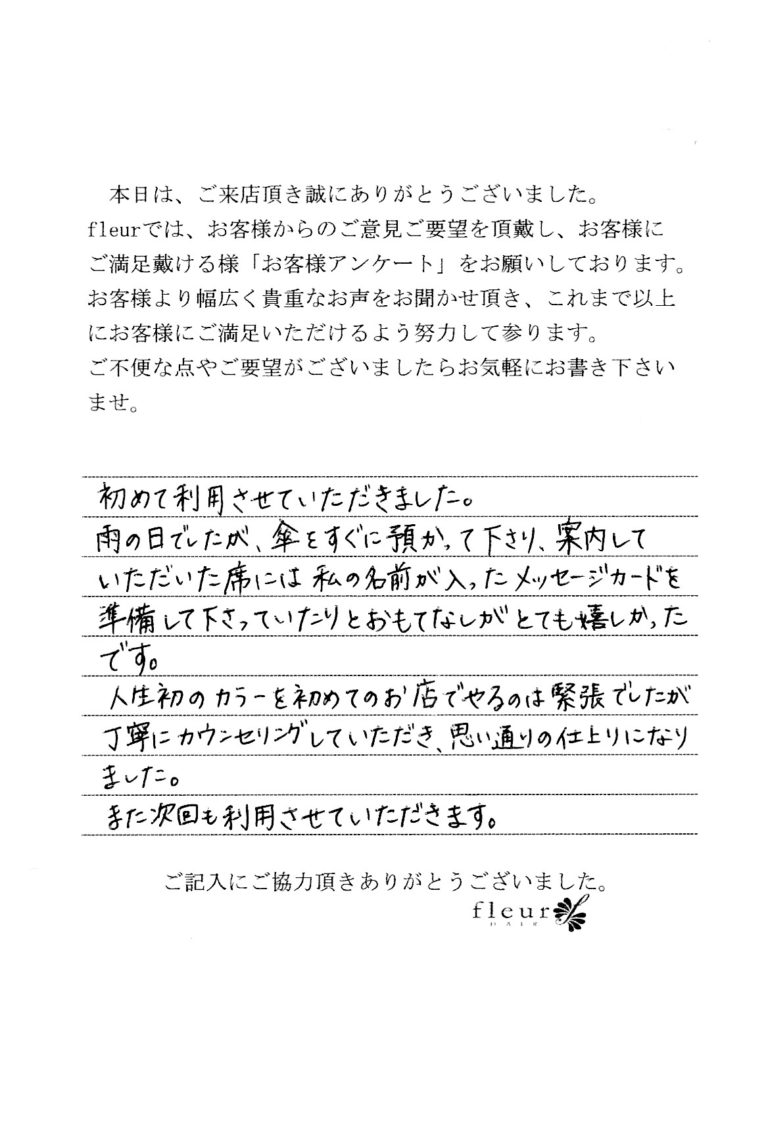 本日は、ご来店頂き誠にありがとうございました。
fleurでは、お客様からのご意見ご要望を頂戴し、お客様に
ご満足戴ける様「お客様アンケート」をお願いしております。
お客様より幅広く貴重なお声をお聞かせ頂き、これまで以上
にお客様にご満足いただけるよう努力して参ります。
ご不便な点やご要望がございましたらお気軽にお書き下さい
ませ。
初めて利用させていただきました。
雨の日でしたが、傘をすぐに預かって下さり、案内して
いただいた席には私の名前が入ったメッセージカードを
準備して下さっていたりとおもてなしがとても嬉しかった
です。
人生初のカラーを初めてのお店でやるのは緊張でしたが
丁寧にカウンセリングしていただき、思い通りの仕上りになり
ました。
また次回も利用させていただきます。
ご記入にご協力頂きありがとうございました。
fleur
HAIR